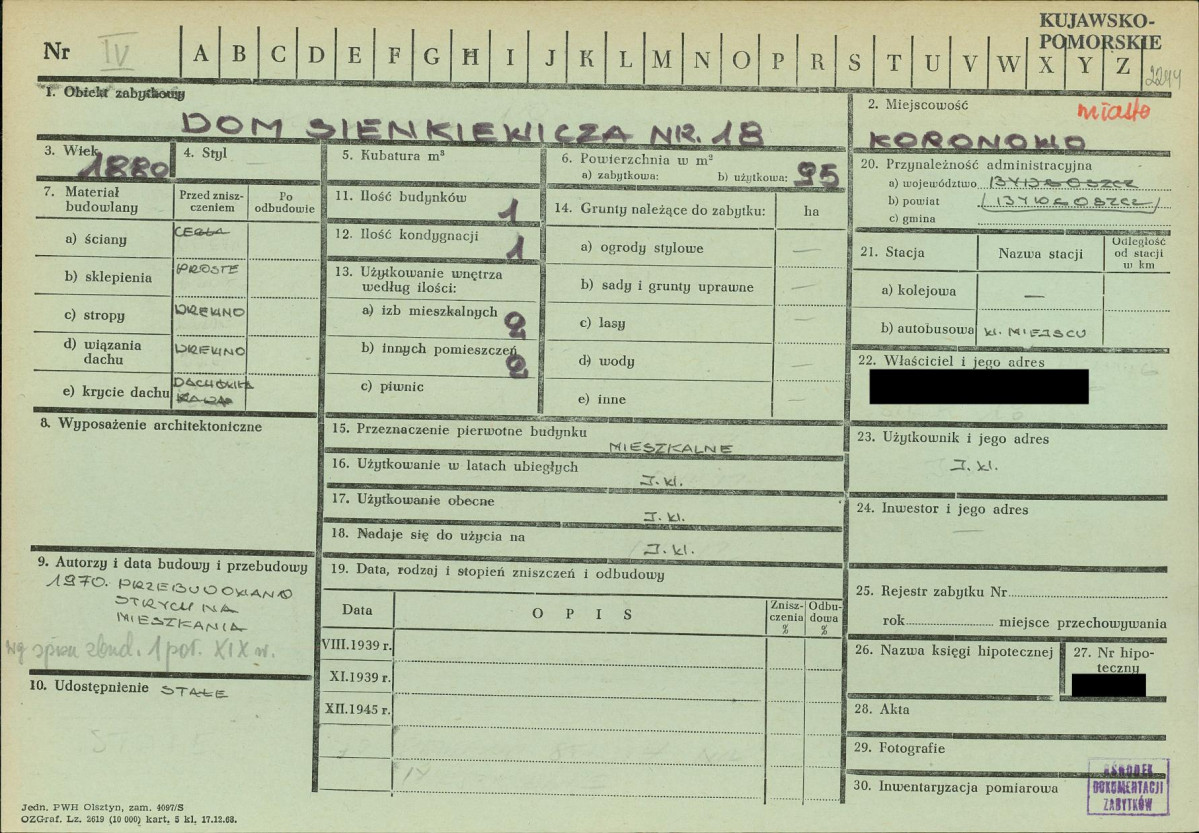 KUJAWSKO-
POMORSKIE
Nr IV A B C D E F G H I J K L M N O P R S T U V W X Y Z
2244
1. Obiekt zabytkowy
DOM SIENKIEWICZA NR. 18
2. Miejscowość miasto
KORONOWO
3. Wiek 1880
4. Styl
5. Kubatura m³
6. Powierzchnia w m²
a) zabytkowa: b) użytkowa: 95
7. Materiał budowlany
Przed zniszczeniem
Po odbudowie
a) ściany CEGŁA
b) sklepienia PROSTE
c) stropy DREWNO
d) wiązania dachu DREWNO
e) krycie dachu DACHÓWKA
8. Wyposażenie architektoniczne
9. Autorzy i data budowy i przebudowy
1970. PRZEBUDOWANO
STRYCH NA
MIESZKANIA
wg spisu zbud. 1 poł. XIX w.
10. Udostępnienie STAŁE
11. Ilość budynków 1
12. Ilość kondygnacji 1
13. Użytkowanie wnętrza
według ilości:
a) izb mieszkalnych 2
b) innych pomieszczeń 2
c) piwnic
14. Grunty należące do zabytku: ha
a) ogrody stylowe —
b) sady i grunty uprawne —
c) lasy —
d) wody —
e) inne —
15. Przeznaczenie pierwotne budynku
MIESZKALNE
16. Użytkowanie w latach ubiegłych
J. kl.
17. Użytkowanie obecne
J. kl.
18. Nadaje się do użycia na
J. kl.
19. Data, rodzaj i stopień zniszczeń i odbudowy
Data OPIS Zniszczenia % Odbudowa %
VIII.1939 r.
XI.1939 r.
XII.1945 r.
20. Przynależność administracyjna
a) województwo BYDGOSZCZ
b) powiat (BYDGOSZCZ)
c) gmina
21. Stacja Nazwa stacji Odległość od stacji w km
a) kolejowa —
b) autobusowa W. MIEJSCU
22. Właściciel i jego adres
23. Użytkownik i jego adres
J. kl.
24. Inwestor i jego adres
—
25. Rejestr zabytku Nr
rok miejsce przechowywania
26. Nazwa księgi hipotecznej
27. Nr hipoteczny
28. Akta
29. Fotografie
30. Inwentaryzacja pomiarowa
OŚRODEK
DOKUMENTACJI
ZABYTKÓW
Jedn. PWH Olsztyn, zam. 4097/S
OZGraf. Lz. 2619 (10 000) kart. 5 kl. 17.12.68.